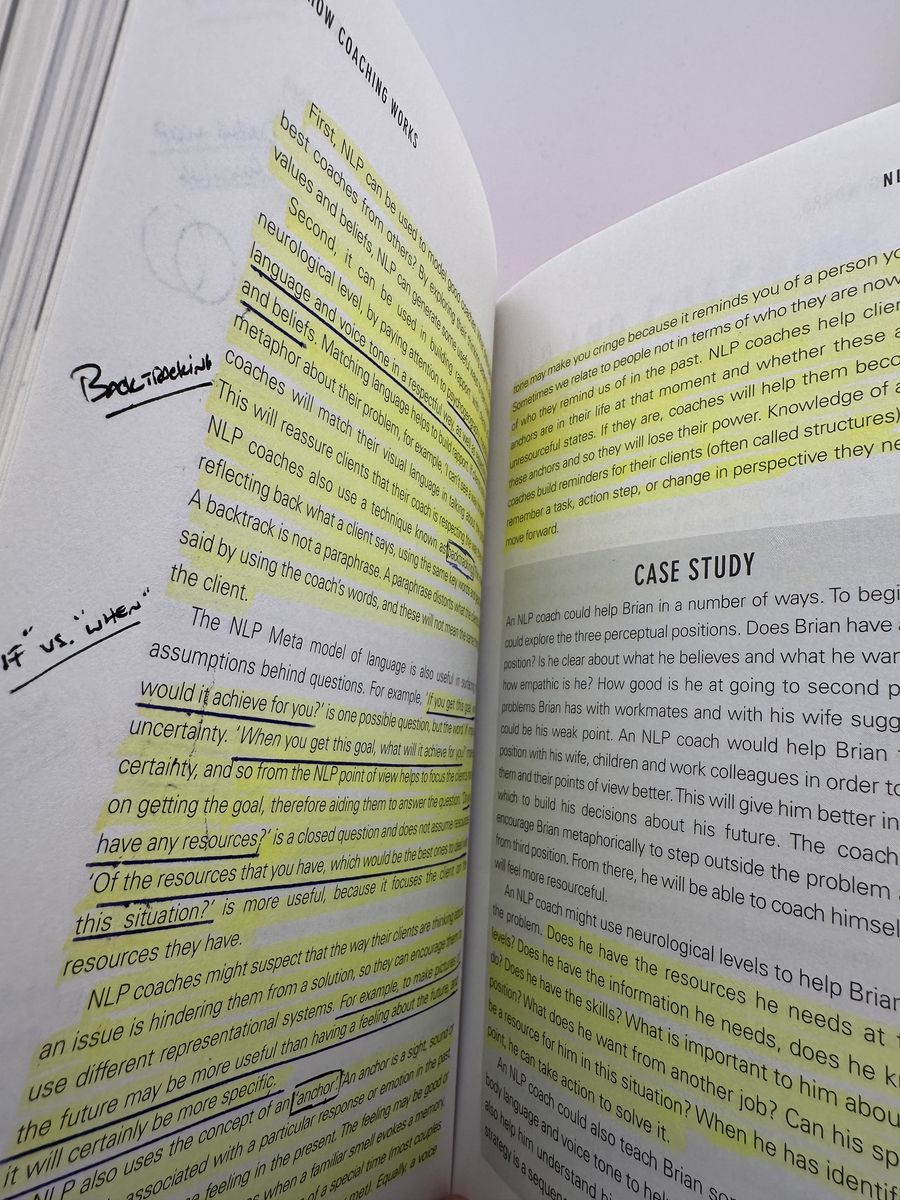 HOW COACHING WORKS
First, NLP can be used to model good
best coaches from others? By exploring their
values and beliefs, NLP can generate some useful
Second, it can be used in building rapport
neurological level, by paying attention to
language and voice tone in a respectful way, as well as
and beliefs. Matching language helps to build rapport.
metaphor about their problem, for example, 'I can't see a
coaches will match their visual language in talking about
This will reassure clients that their coach is respecting
NLP coaches also use a technique known as backtracking
reflecting back what a client says, using the same key words
A backtrack is not a paraphrase. A paraphrase distorts what the
said by using the coach's words, and these will not mean the same
the client.
The NLP Meta model of language is also useful in
assumptions behind questions. For example, 'If you get this goal,
would it achieve for you?' is one possible question, but the word 'if'
uncertainty. 'When you get this goal, what will it achieve for you?'
certainty, and so from the NLP point of view helps to focus the
on getting the goal, therefore aiding them to answer the question.
have any resources?' is a closed question and does not assume
'Of the resources that you have, which would be the best ones to
this situation?' is more useful, because it focuses the client on
resources they have.
NLP coaches might suspect that the way their clients are thinking about
an issue is hindering them from a solution, so they can encourage them
use different representational systems. For example, to make pictures of
the future may be more useful than having a feeling about the future, and
it will certainly be more specific.
NLP also uses the concept of an 'anchor.' An anchor is a sight, sound or
associated with a particular response or emotion in the past,
feeling in the present. The feeling may be good or
when a familiar smell evokes a memory,
of a special time (most couples
met). Equally, a voice
BACKTRACKING
"IF" VS. "WHEN"
tone may make you cringe because it reminds you of a person
Sometimes we relate to people not in terms of who they are now
of who they remind us of in the past. NLP coaches help
anchors are in their life at that moment and whether these
unresourceful states. If they are, coaches will help them
these anchors and so they will lose their power. Knowledge of
coaches build reminders for their clients (often called structures)
remember a task, action step, or change in perspective they
move forward.
CASE STUDY
An NLP coach could help Brian in a number of ways. To
could explore the three perceptual positions. Does Brian have
position? Is he clear about what he believes and what he
how empathic is he? How good is he at going to second
problems Brian has with workmates and with his wife
could be his weak point. An NLP coach would help Brian
position with his wife, children and work colleagues in order to
them and their points of view better. This will give him better
which to build his decisions about his future. The coach
encourage Brian metaphorically to step outside the problem
from third position. From there, he will be able to coach
will feel more resourceful.
An NLP coach might use neurological levels to help Brian
the problem. Does he have the resources he needs at
levels? Does he have the information he needs, does he
do? Does he have the skills? What is important to him
position? What does he want from another job? Can his
be a resource for him in this situation? When he has
point, he can take action to solve it.
An NLP coach could also teach Brian
body language and voice tone to
also help him understand
strategy is a